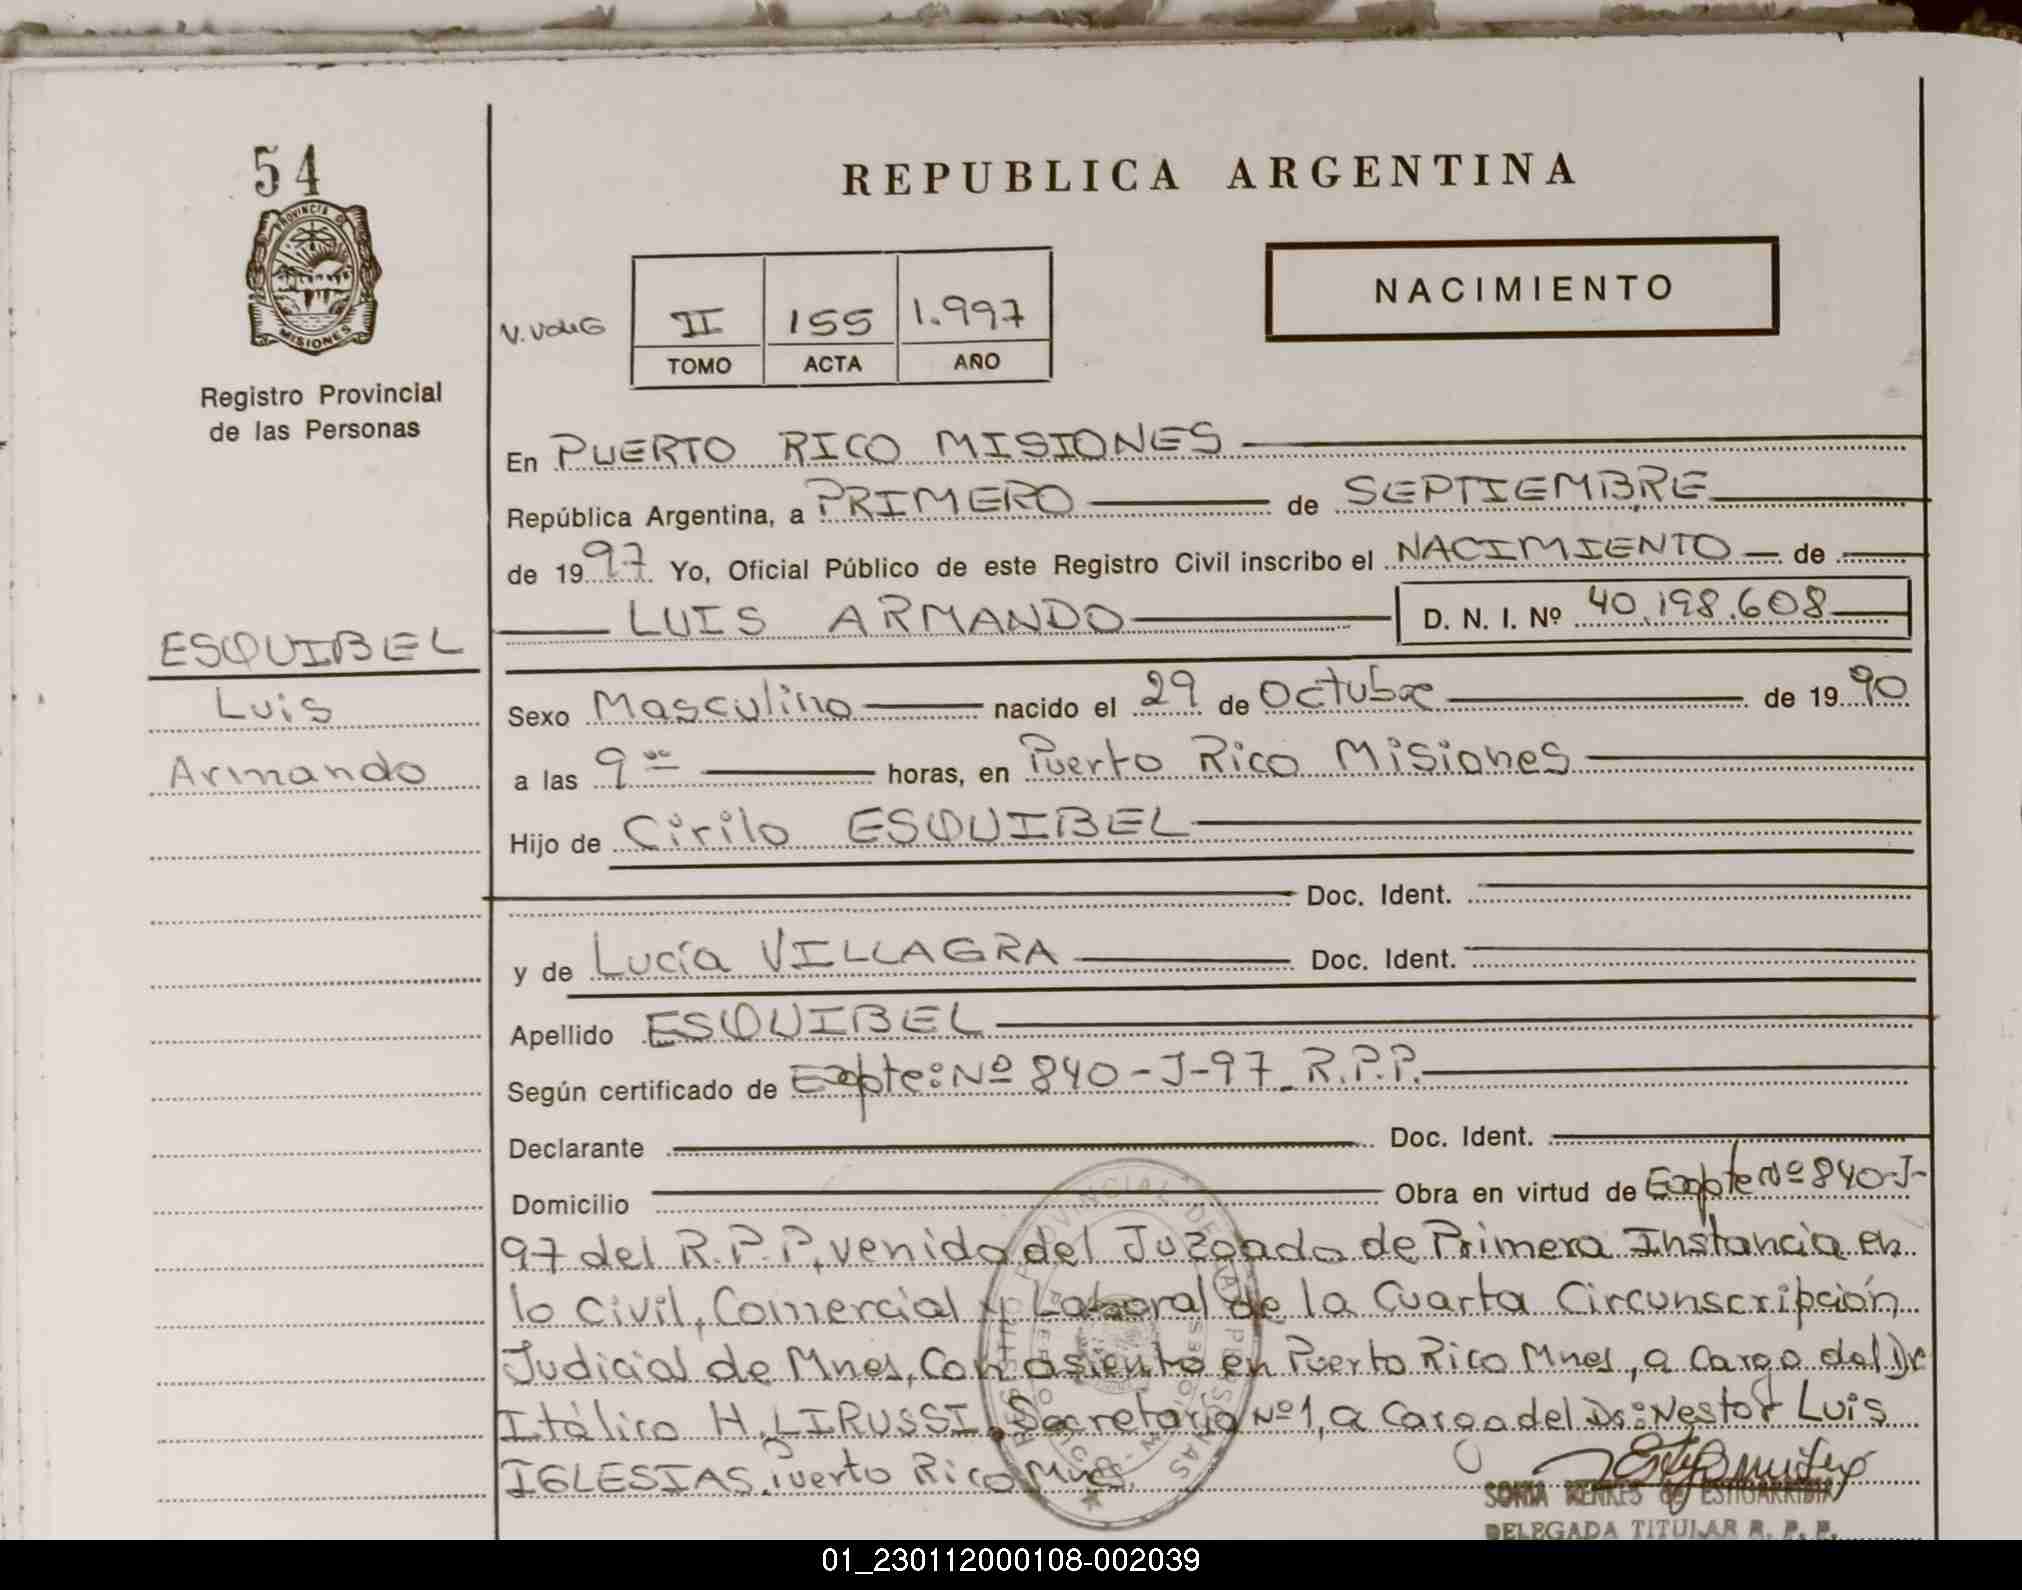 54
PROVINCIA DE
MISIONES
Registro Provincial
de las Personas
ESQUIBEL
Luis
Armando
REPUBLICA ARGENTINA
NACIMIENTO
II 155 1.997
TOMO ACTA AÑO
En PUERTO RICO MISIONES
República Argentina, a PRIMERO de SEPTIEMBRE
de 1997 Yo, Oficial Público de este Registro Civil inscribo el NACIMIENTO de
LUIS ARMANDO D. N. I. Nº 40.198.608
Sexo Masculino nacido el 29 de Octubre de 1990
a las 9 oo horas, en Puerto Rico Misiones
Hijo de Cirilo ESQUIBEL
Doc. Ident.
y de Lucía VILLAGRA Doc. Ident.
Apellido ESQUIBEL
Según certificado de Expte: Nº 840-J-97 R.P.P.
Declarante Doc. Ident.
Domicilio Obra en virtud de Expte Nº 840-J-
97 del R.P.P, venido del Juzgado de Primera Instancia en
lo Civil, Comercial y Laboral de la Cuarta Circunscripción
Judicial de Mnes, Con asiento en Puerto Rico Mnes, a Cargo del Dr
Itálico H. LIRUSSI, Secretaria Nº 1, a Cargo del Dr: Nestor Luis
IGLESIAS. Puerto Rico Mnes.
SONIA DE ESTIGARRIBIA
DELEGADA TITULAR R. P. P.
01_230112000108-002039